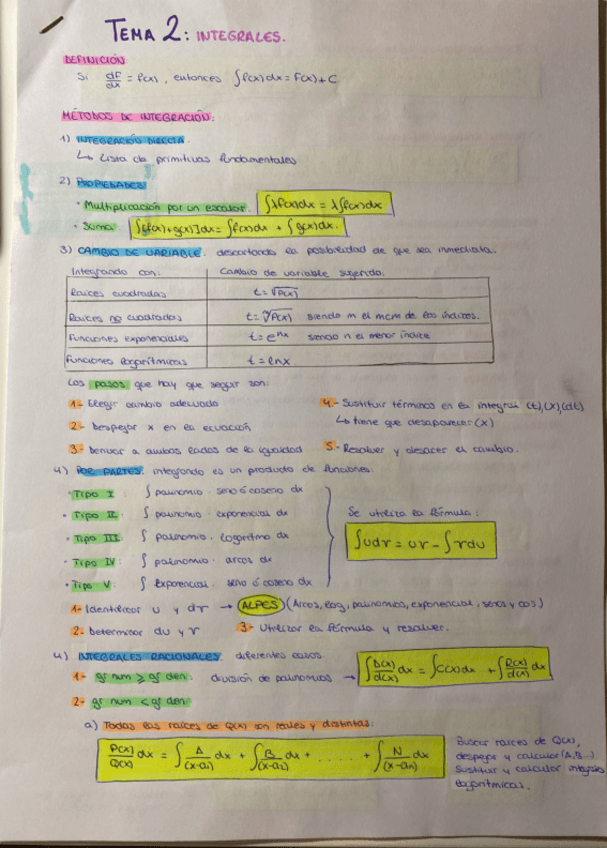 TEMA 2: INTEGRALES.
DEFINICIÓN
Si dF/dx = f(x), entonces ∫f(x)dx = F(x)+C
MÉTODOS DE INTEGRACIÓN:
1) INTEGRACIÓN DIRECTA.
↳ Lista de primitivas fundamentales
2) PROPIEDADES
· Multiplicación por un escalar. ∫λf(x)dx = λ∫f(x)dx
· Suma: ∫[f(x)+g(x)]dx = ∫f(x)dx + ∫g(x)dx.
3) CAMBIO DE VARIABLE. descartando la posibilidad de que sea inmediata.
Integrando con: Cambio de variable sugerido.
Raíces cuadradas t = √P(x)
Raíces no cuadradas t = ᵐ√P(x) siendo m el mcm de los índices.
Funciones exponenciales t = eⁿˣ siendo n el menor índice
Funciones logarítmicas t = lnx
Los pasos que hay que seguir son:
1- Elegir cambio adecuado
2- Despejar x en la ecuación
3- Derivar a ambos lados de la igualdad
4- Sustituir términos en la integral (t),(x),(dt)
↳ tiene que desaparecer (x)
5- Resolver y deshacer el cambio.
4) POR PARTES. integrando es un producto de funciones.
· Tipo I: ∫ polinomio · seno ó coseno dx
· Tipo II: ∫ polinomio · exponencial dx
· Tipo III: ∫ polinomio · logaritmo dx
· Tipo IV: ∫ polinomio · arcos dx
· Tipo V: ∫ Exponencial · seno ó coseno dx
Se utiliza la fórmula:
∫udv = uv - ∫vdu
1- Identificar u y dv → ALPES (Arcos, log, polinomios, exponencial, senos y cos)
2- Determinar du y v
3- Utilizar la fórmula y resolver.
4) INTEGRALES RACIONALES. diferentes casos.
1- gr num ≥ gr den: división de polinomios → ∫D(x)/d(x) dx = ∫C(x)dx + ∫R(x)/d(x) dx
2- gr num < gr den
a) Todas las raíces de Q(x) son reales y distintas:
P(x)/Q(x) dx = ∫A/(x-a₁) dx + ∫B/(x-a₂) dx + ...... + ∫N/(x-aₙ) dx
Buscar raíces de Q(x),
despejar y calcular (A,B...)
Sustituir y calcular integrales
logarítmicas.